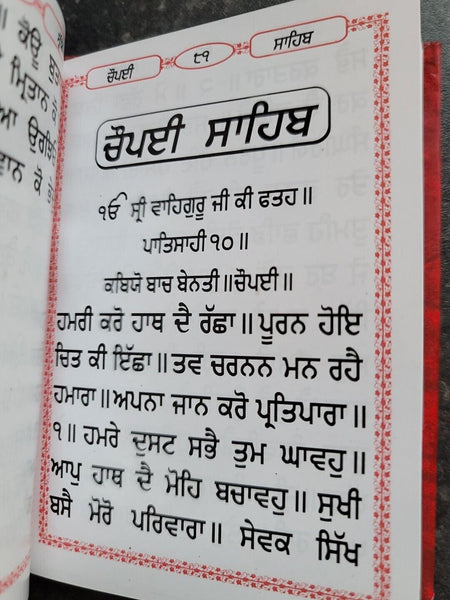 ਕੋਊ
ਮ੍ਰਿਤਾਨ ਕੇ
ਚੌਪਈ ੯੧ ਸਾਹਿਬ
ਚੌਪਈ ਸਾਹਿਬ
ੴ ਸ੍ਰੀ ਵਾਹਿਗੁਰੂ ਜੀ ਕੀ ਫਤਹ॥
ਪਾਤਿਸਾਹੀ ੧੦॥
ਕਬਿਯੋ ਬਾਚ ਬੇਨਤੀ॥ਚੌਪਈ॥
ਹਮਰੀ ਕਰੋ ਹਾਥ ਦੈ ਰੱਛਾ॥ਪੂਰਨ ਹੋਇ
ਚਿਤ ਕੀ ਇੱਛਾ॥ਤਵ ਚਰਨਨ ਮਨ ਰਹੈ
ਹਮਾਰਾ॥ਅਪਨਾ ਜਾਨ ਕਰੋ ਪ੍ਰਤਿਪਾਰਾ॥
੧॥ ਹਮਰੇ ਦੁਸਟ ਸਭੈ ਤੁਮ ਘਾਵਹੁ॥
ਆਪੁ ਹਾਥ ਦੈ ਮੋਹਿ ਬਚਾਵਹੁ॥ ਸੁਖੀ
ਬਸੈ ਮੋਰੋ ਪਰਿਵਾਰਾ॥ ਸੇਵਕ ਸਿੱਖ